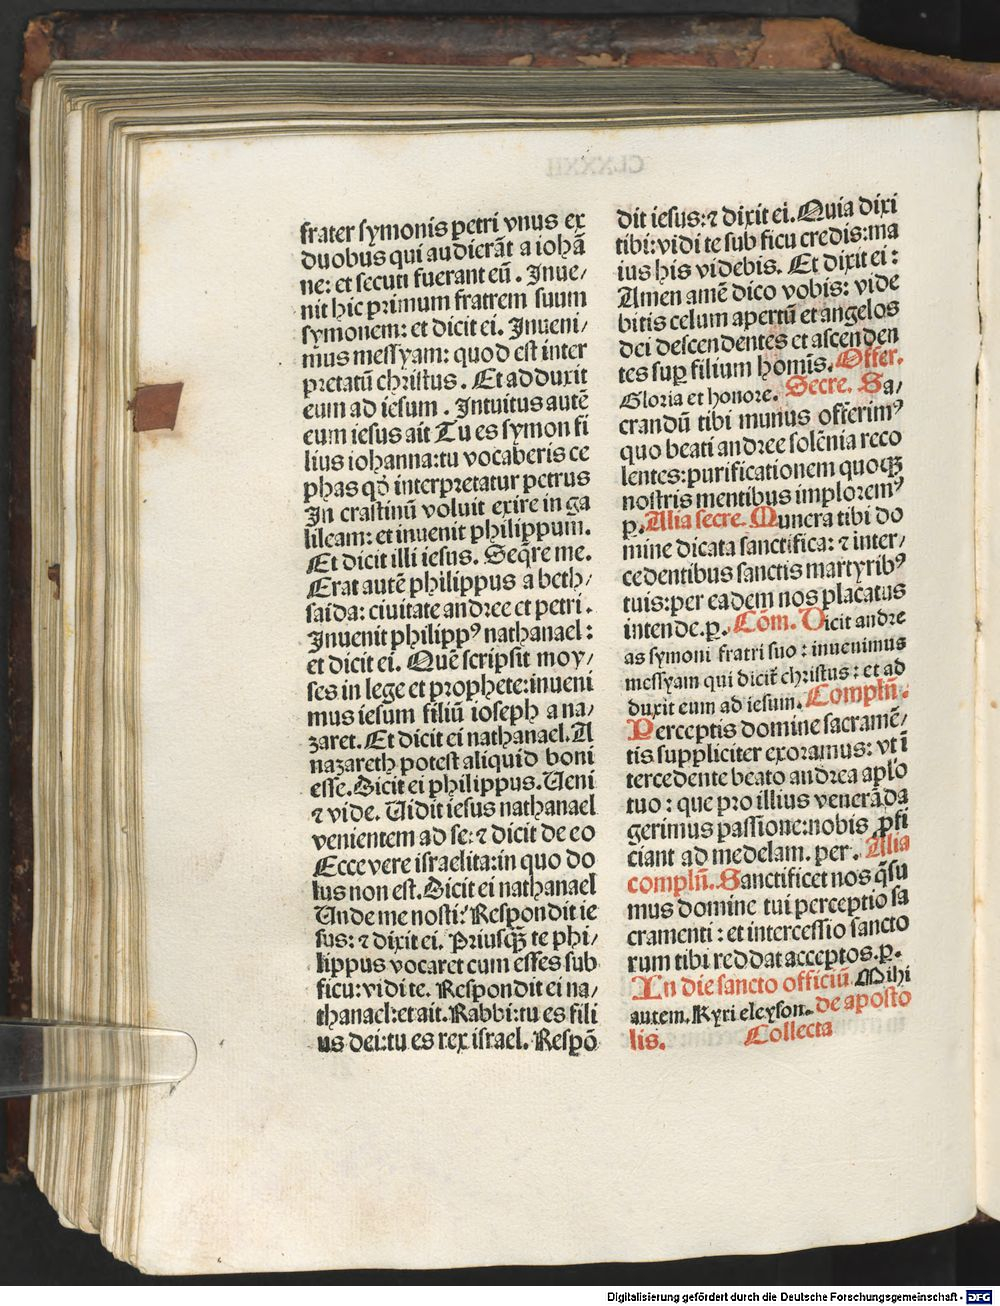 frater symonis petri vnus ex
duobus qui audierãt a iohã
ne: et secuti fuerant eũ. Inue/
nit hic primum fratrem suum
symonem: et dicit ei. Inueni/
mus messyam: quod est inter
pretatũ christus. Et adduxit
eum ad iesum. Intuitus autẽ
eum iesus ait Tu es symon fi
lius iohanna: tu vocaberis ce
phas qđ interpretatur petrus
In crastinũ voluit exire in ga
lileam: et inuenit philippum.
Et dicit illi iesus. Seq̃re me.
Erat autẽ philippus a beth/
saida: ciuitate andree et petri.
Inuenit philippꝰ nathanael:
et dicit ei. Quẽ scripsit moy/
ses in lege et prophete: inueni
mus iesum filiũ ioseph a na/
zaret. Et dicit ei nathanael. A
nazareth potest aliquid boni
esse. Dicit ei philippus. Ueni
⁊ vide. Uidit iesus nathanael
venientem ad se: ⁊ dicit de eo
Ecce vere israelita: in quo do
lus non est. Dicit ei nathanael
Unde me nosti? Respondit ie
sus: ⁊ dixit ei. Priusqꝫ te phi/
lippus vocaret cum esses sub
ficu: vidi te. Respondit ei na/
thanael: et ait. Rabbi: tu es fili
us dei: tu es rex israel. Respõ
dit iesus: ⁊ dixit ei. Quia dixi
tibi: vidi te sub ficu credis: ma
ius his videbis. Et dixit ei:
Amen amẽ dico vobis: vide
bitis celum apertũ et angelos
dei descendentes et ascenden
tes suꝑ filium homĩs. Offer.
Gloria et honore. Secre. Sa/
crandũ tibi munus offerimꝰ
quo beati andree solẽnia reco
lentes: purificationem quoqꝫ
nostris mentibus imploremꝰ
p. Alia secre. Munera tibi do
mine dicata sanctifica: ⁊ inter/
cedentibus sanctis martyribꝰ
tuis: per eadem nos placatus
intende. p. Cõm. Dicit andre
as symoni fratri suo: inuenimus
messyam qui dicit̃ christus: et ad
duxit eum ad iesum. Complñ.
Perceptis domine sacramẽ/
tis suppliciter exoramus: vt ĩ
tercedente beato andrea apło
tuo: que pro illius venerãda
gerimus passione: nobis ꝓfi
ciant ad medelam. per. Alia
complñ. Sanctificet nos q̃su
mus domine tui perceptio sa
cramenti: et intercessio sancto
rum tibi reddat acceptos. p.
In die sancto officiũ. Mihi
autem. Kyri eleyson. de aposto
lis. Collecta
CLXXXII
Digitalisierung gefördert durch die Deutsche Forschungsgemeinschaft - DFG